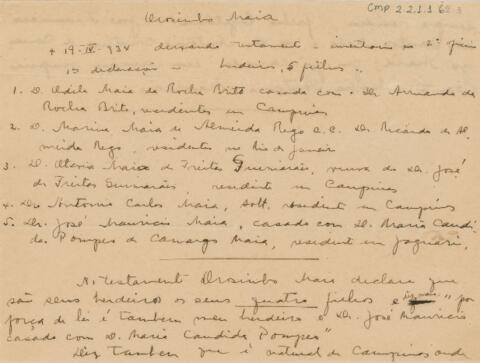 CMP 2.2.1.1.6
Orosimbo Maia
+ 19-IV-934 deixando testamento - inventario no 2º oficio
1ª declaração - herdeiros, 5 filhos..
1. D. Odila Maia da Rocha Brito casada com o Dr. Armando da
Rocha Brito, residentes em Campinas
2. D. Marina Maia de Almeida Rego c.c. Dr. Ricardo de Al-
meida Rego, residentes no Rio de Janeiro
3. D. Otavia Maia de Freitas Guimarães, viuva do Dr. José
de Freitas Guimarães, residente em Campinas
4. Dr. Antonio Carlos Maia, solt. residente em Campinas
5. Dr. José Mauricio Maia, casado com D. Maria Candi-
da Pompeo de Camargo Maia, residente em Jaguari.
No testamento Orosimbo Maia declara que
são seus herdeiros os seus quatro filhos e "por
força de lei é tambem meu herdeiro o Dr. José Mauricio
casado com D. Maria Candida Pompeo"
Diz tambem que é natural de Campinas, onde